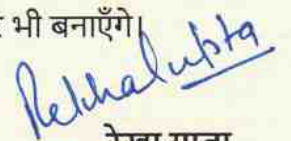 भी बनाएँगे।
Rekha Gupta
रेखा गुप्ता